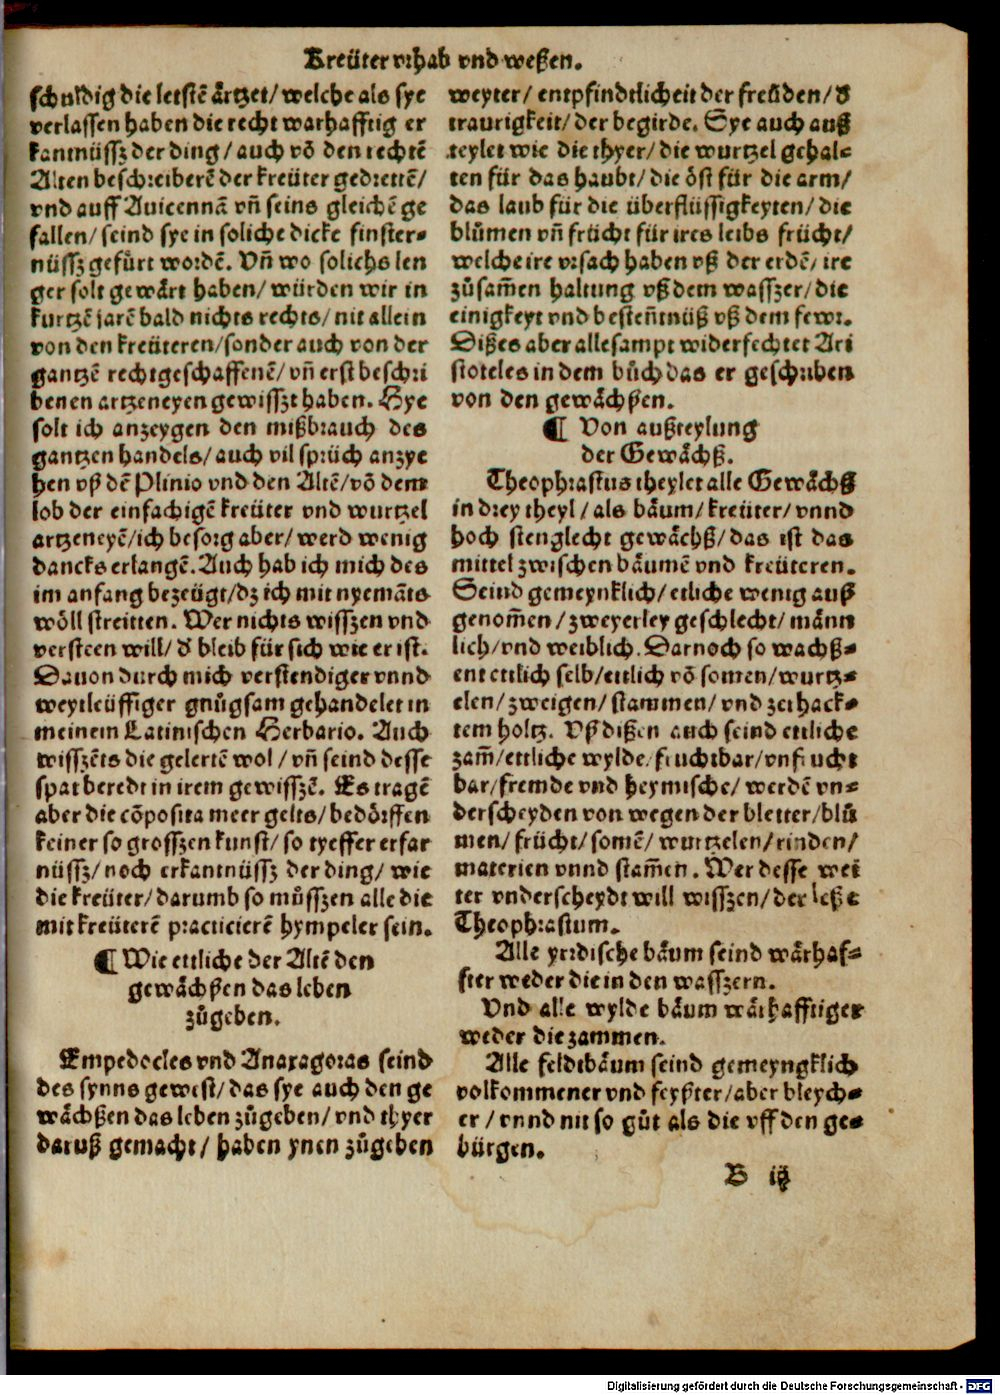 Kreüter vrhab vnd weßen.
schuldig die letstē ärtzet/ welche als sye
verlassen haben die recht warhafftig er
kantnüssz der ding / auch vō den rechtē
Alten beschreiberē der kreüter gedrettē/
vnd auff Auicennā vñ seins gleichē ge
fallen/ seind sye in soliche dicke finster-
nüssz gefürt wordē. Vñ wo solichs len
ger solt gewärt haben/ würden wir in
kurtzē jarē bald nichts rechts/ nit allein
von den kreüteren/ sonder auch von der
gantzē rechtgeschaffenē/ vñ erst beschri
benen artzeneyen gewisszt haben. Hye
solt ich anzeygen den mißbrauch des
gantzen handels/ auch vil sprüch anzye
hen vß dē Plinio vnd den Altē/ vō dem
lob der einfachigē kreüter vnd wurtzel
artzeneyē/ ich besorg aber/ werd wenig
dancks erlangē. Auch hab ich mich des
im anfang bezeügt/ dz ich mit nyemāts
wöll streitten. Wer nichts wisszen vnd
versteen will/ d' bleib für sich wie er ist.
Dauon durch mich verstendiger vnnd
weytleüffiger gnůgsam gehandelet in
meinem Latinischen Herbario. Auch
wisszēts die gelertē wol / vñ seind desse
spat beredt in irem gewisszē. Es tragē
aber die cōposita meer gelts/ bedörffen
keiner so grosszen kunst/ so tyeffer erfar
nüssz/ noch erkantnüssz der ding/ wie
die kreüter/ darumb so můsszen alle die
mit kreüterē practicierē hympeler sein.
¶ Wie ettliche der Altē den
gewächßen das leben
zůgeben.
Empedocles vnd Anaxagoras seind
des synns gewest/ das sye auch den ge
wächßen das leben zůgeben/ vnd thyer
daruß gemacht/ haben ynen zůgeben
weyter/ entpfindtlicheit der freüden/ d'
traurigkeit/ der begirde. Sye auch auß
teylet wie die thyer/ die wurtzel gehal-
ten für das haubt/ die öst für die arm/
das laub für die überflüssigkeyten/ die
blůmen vñ frücht für ires leibs frücht/
welche ire vrsach haben vß der erdē/ ire
zůsam̄en haltung vß dem wasszer/ die
einigkeyt vnd besten̄tnüß vß dem fewr.
Dißes aber allesampt widerfechtet Ari
stoteles in dem bůch das er geschriben
von den gewächßen.
¶ Von außteylung
der Gewächß.
Theophrastus theylet alle Gewächß
in drey theyl / als bäum/ kreüter/ vnnd
hoch stenglecht gewächß/ das ist das
mittel zwischen bäumē vnd kreüteren.
Seind gemeynklich/ etliche wenig auß
genom̄en / zweyerley geschlecht/ männ
lich/ vnd weiblich. Darnoch so wachß-
ent ettlich selb/ ettlich vō somen/ wurtz-
elen/ zweigen/ stammen/ vnd zerhack-
tem holtz. Vß dißen auch seind ettliche
zam̄/ ettliche wylde/ fruchtbar/ vnfrucht
bar/ fremde vnd heymische/ werdē vn-
derscheyden von wegen der bletter/ blů
men/ frücht/ somē/ wurtzelen/ rinden/
materien vnnd stam̄en. Wer desse wei
ter vnderscheydt will wisszen/ der leße
Theophrastum.
Alle yrrdische bäum seind wärhaf-
fter weder die in den wasszern.
Vnd alle wylde bäum wärhafftiger
weder die zammen.
Alle feldtbäum seind gemeyngklich
volkommener vnd feyßter/ aber bleych-
er / vnnd nit so gůt als die vff den ge-
bürgen.
B iij
Digitalisierung gefördert durch die Deutsche Forschungsgemeinschaft - DFG